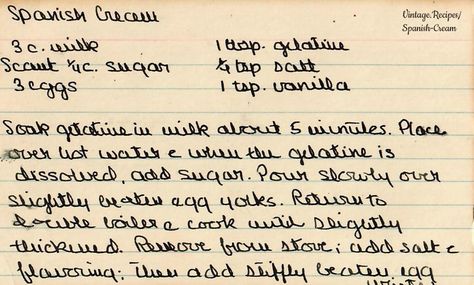 Spanish Cream
Vintage.Recipes/
Spanish-Cream
3 c. milk
1 tbsp. gelatine
Scant ¼c. sugar
¼ tsp salt
3 eggs
1 tsp. vanilla
Soak gelatine in milk about 5 minutes. Place
over hot water & when the gelatine is
dissolved, add sugar. Pour slowly over
slightly beaten egg yolks. Return to
double boiler & cook until slightly
thickened. Remove from stove; add salt &
flavoring; then add stiffly beaten egg
whites